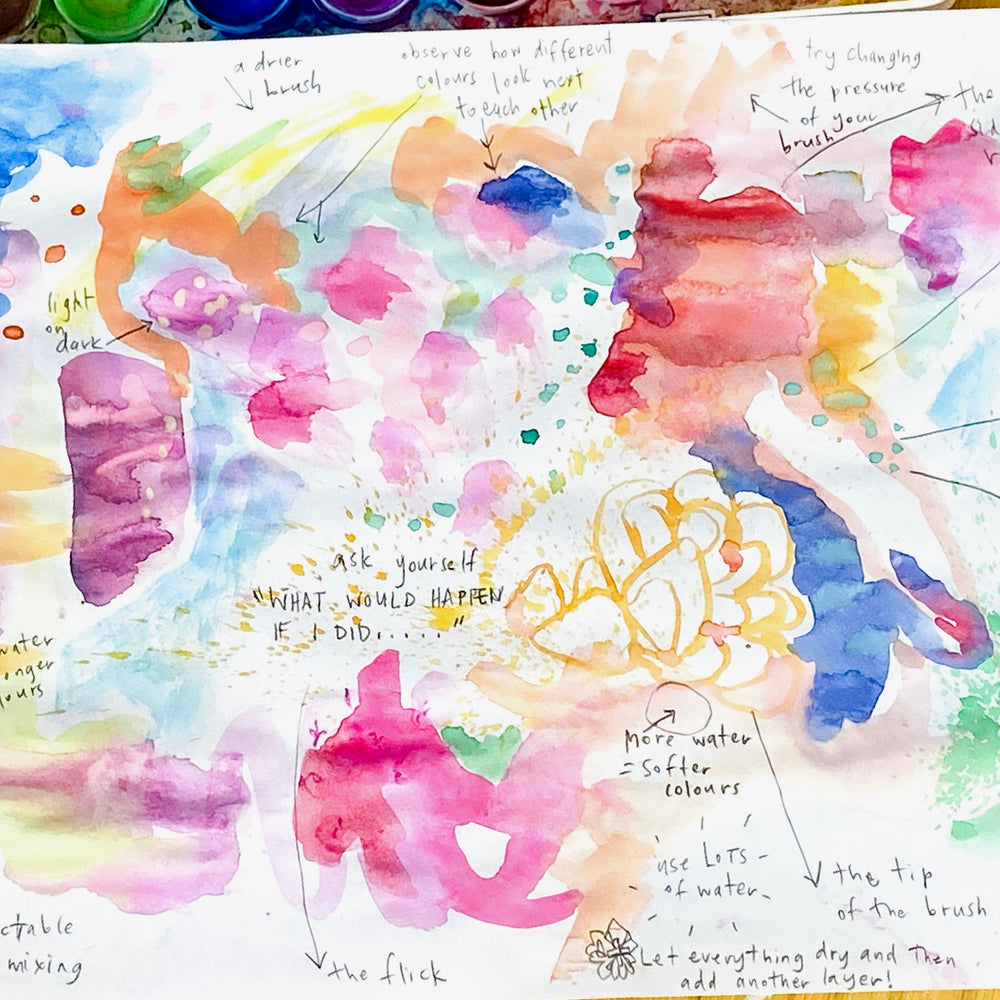 a drier
brush
observe how different
colours look next
to each other
try changing
the pressure
of your
brush
the
light
on
dark
ask yourself
"WHAT WOULD HAPPEN
IF I DID....."
water
onger
lours
More water
= softer
colours
use LOTS
of water
the tip
of the brush
ctable
mixing
the flick
Let everything dry and Then
add another layer!